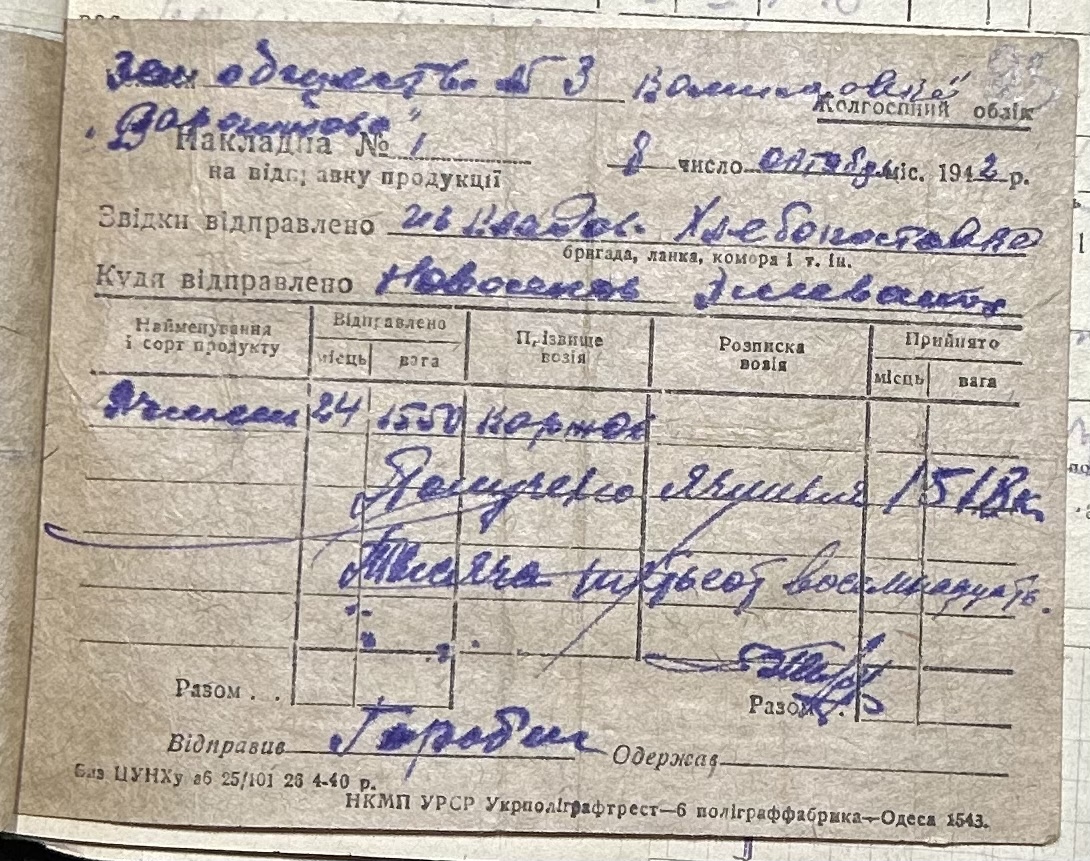 Зем обществ. № 3
Колгоспний облік
Накладна № 1
на відправку продукції
8 число октября міс. 1942 р.
Звідки відправлено из кладов. Хлебопоставка
бригада, ланка, комора і т. ін.
Куди відправлено Елеватор
Найменування і сорт продукту | Відправлено | Прізвище возія | Розписка возія | Прийнято
місць | вага | місць | вага
Ячмень 24 1550 Коржов
Получено Ячменя 1518 к
Тысяча пятьсот восемнадцать.
Разом . . Разом . .
Відправив Одержав
Бланк ЦУНХу аб 25/101 26 4-40 р.
НКМП УРСР Укрполіграфтрест—6 поліграффабрика—Одеса 1543.